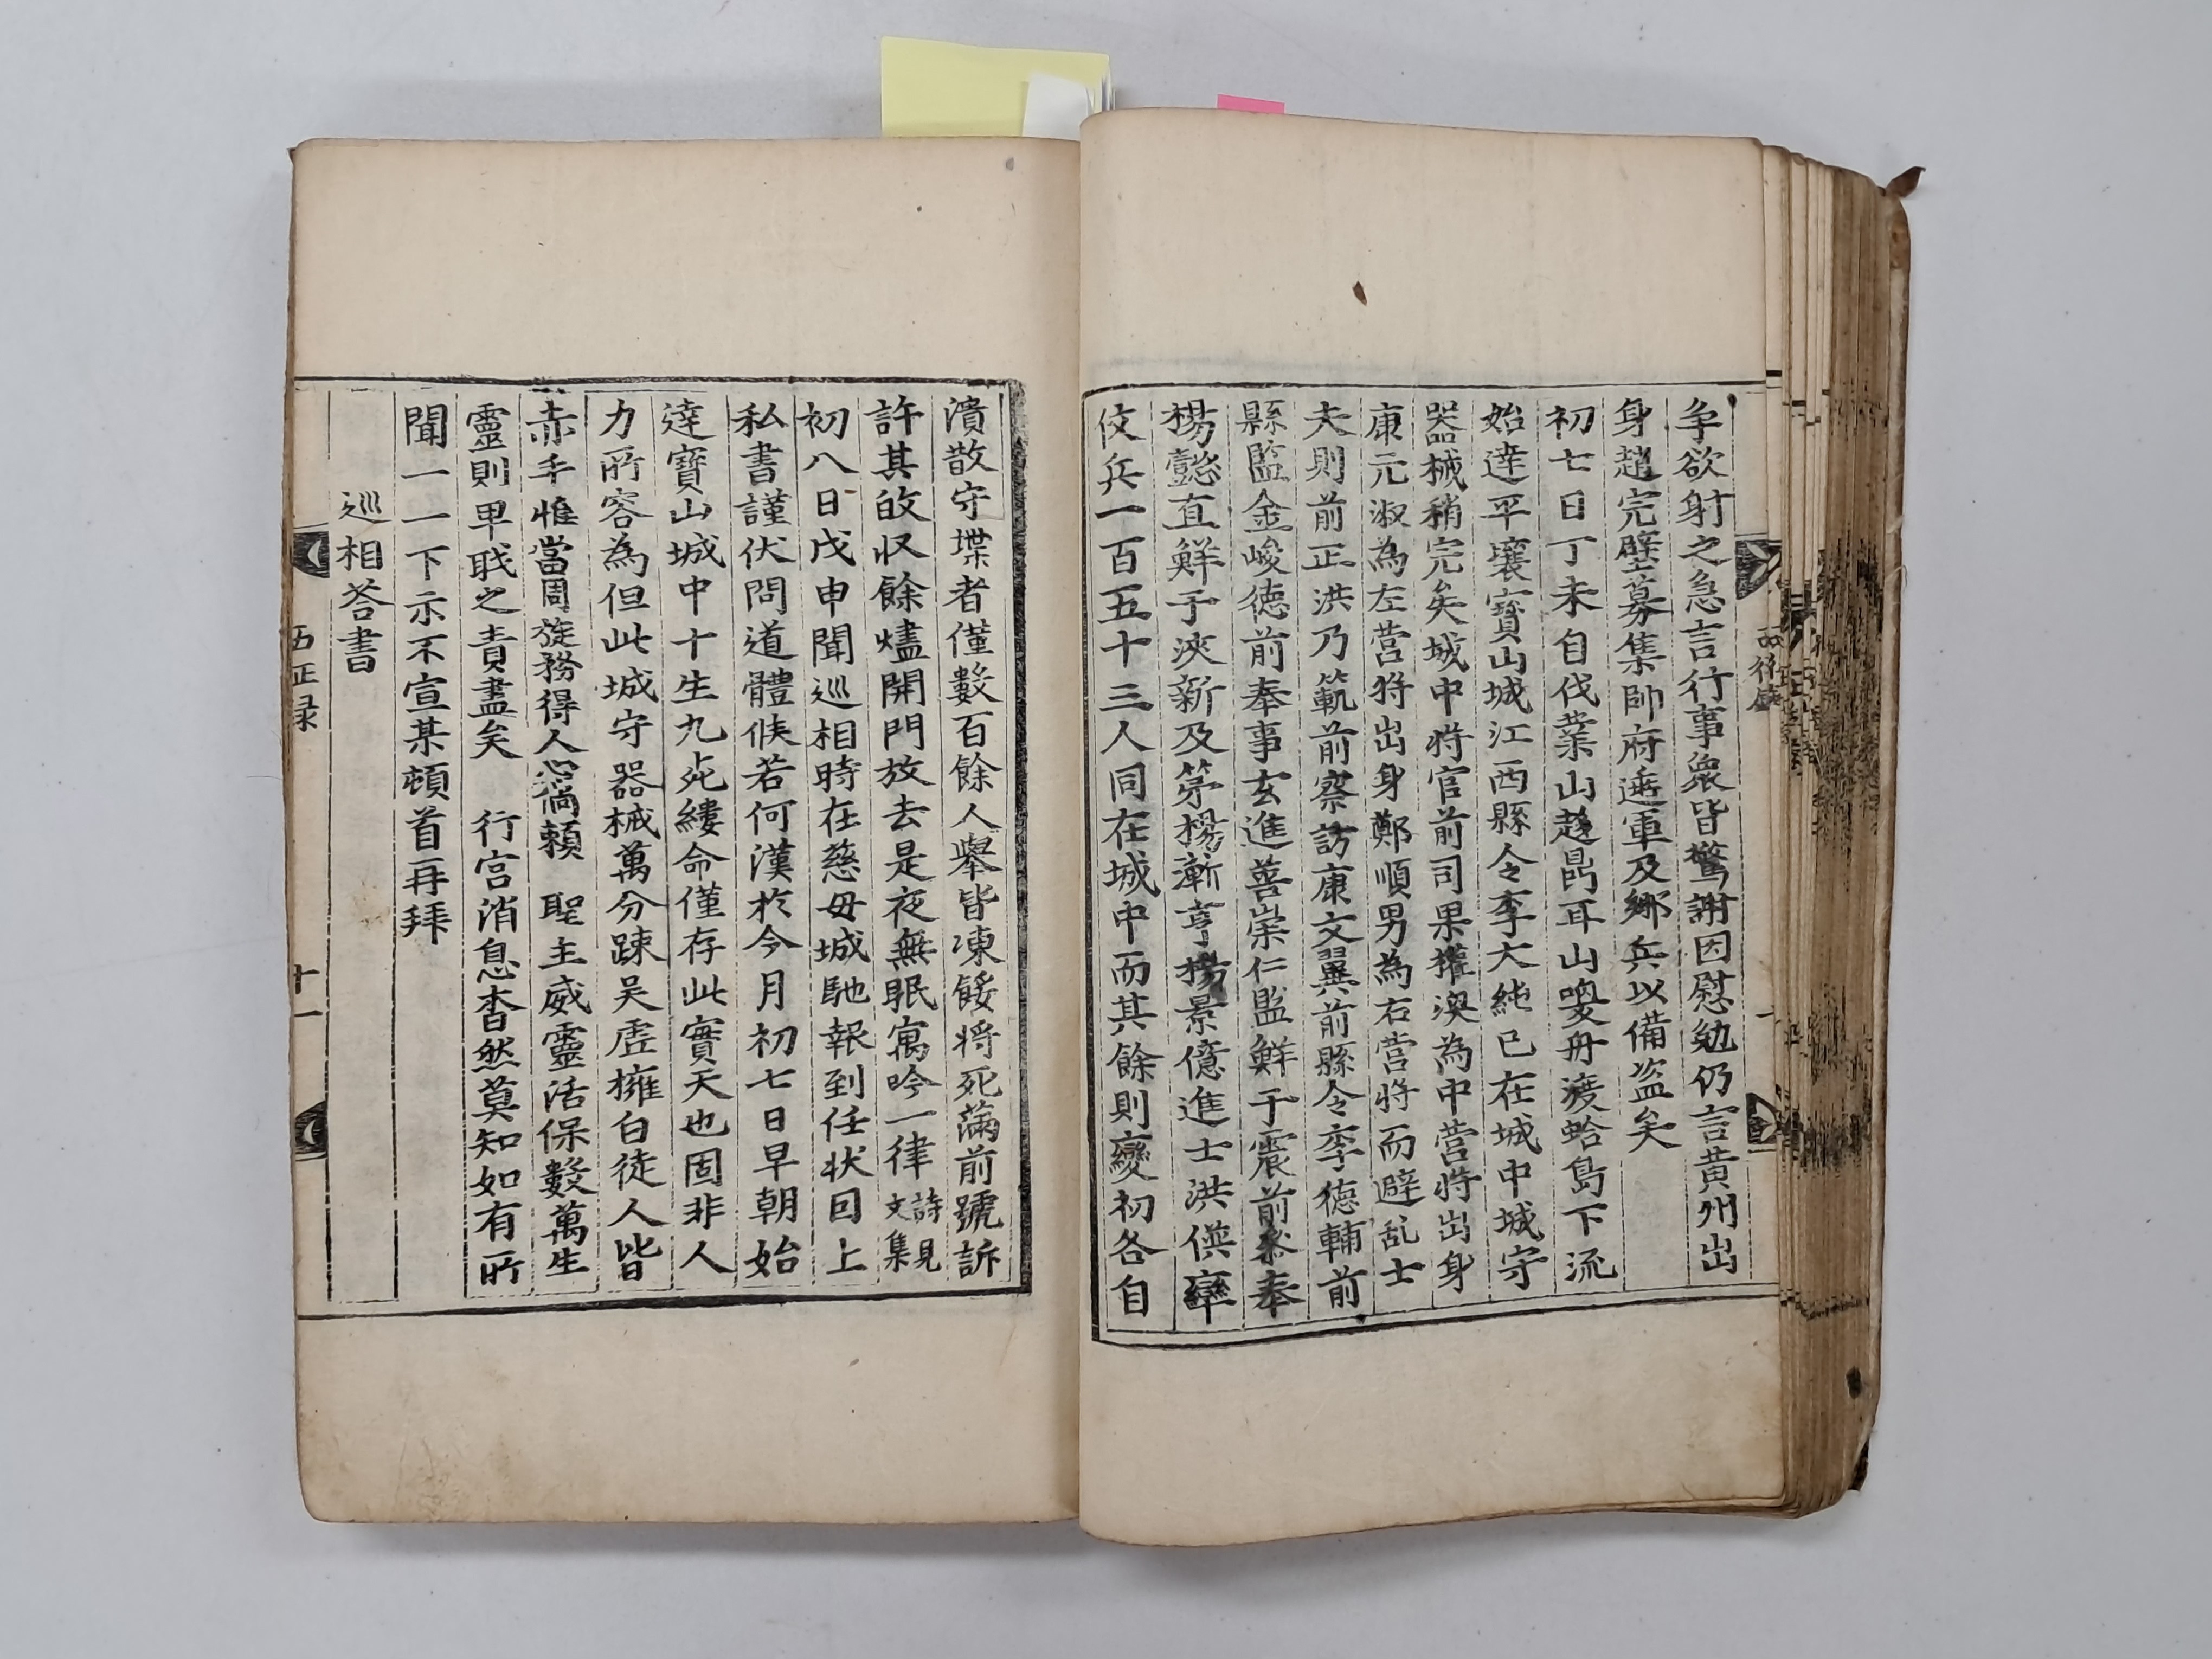 争欲射之急言行事衆皆驚謝因慰勉仍言黄州出
身趙完璧募集帥府逓軍及鄉兵以備盗矣
初七日丁未自伐業山趍昷耳山喚舟渡蛤島下流
始達平壤寶山城江西縣令李大純已在城中城守
器械稍完矣城中將官前司果權渙為中營將出身
康元淑為左營將出身鄭順男為右營將而避乱士
夫則前正洪乃範前察訪康文翼前縣令李德輔前
縣監金峻德前奉事玄進善崇仁監鮮于震前叅奉
楊懿直鮮于浹新及第楊漸亨楊景億進士洪僙率
伩兵一百五十三人同在城中而其餘則變初各自
潰散守堞者僅數百餘人擧皆凍餒將死滿前號訴
許其收餘燼開門放去是夜無眠寓吟一律詩見文集
初八日戊申聞巡相時在慈母城馳報到任状回上
私書謹伏問道體候若何漢於今月初七日早朝始
達寶山城中十生九死縷命僅存此實天也固非人
力所容為但此城守器械萬分踈吴虗擁白徒人皆
赤手惟當周旋務得人心倘賴 聖主威靈活保數萬生
靈則卑職之責盡矣 行宮消息杳然莫知如有所
聞一一下示不宣某頓首再拜
巡相荅書
西正录
十一